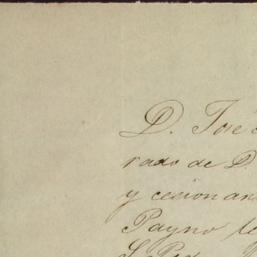 D. José
rado de D
y cesion an
Payno